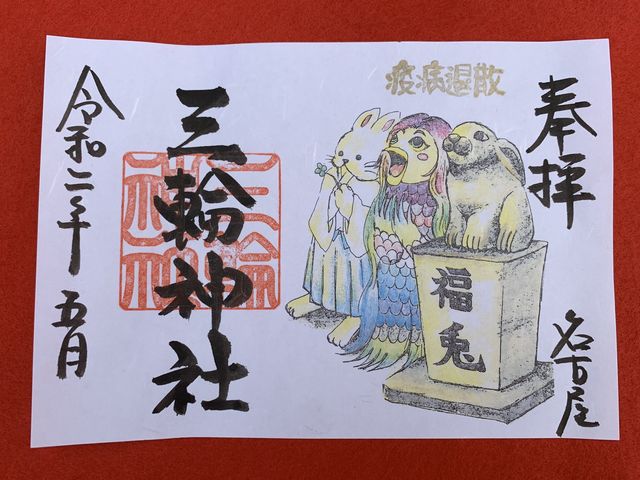 奉拝
名古屋
疫病退散
福兎
三輪神社
三輪
神社
令和二年五月